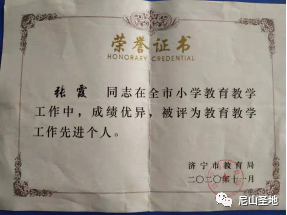 荣誉证书
HONORARY CREDENTIAL
张霞 同志在全市小学教育教学
工作中，成绩优异，被评为教育教学
工作先进个人。
济宁市教育局
二〇二〇年十一月
尼山圣地